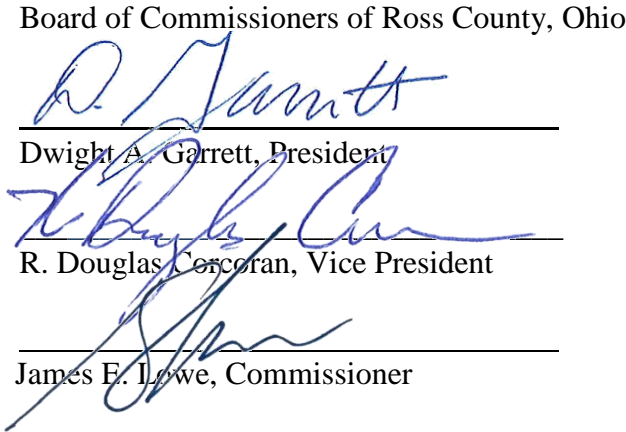 Board of Commissioners of Ross County, Ohio
D. Garrett
Dwight A. Garrett, President
R. Douglas Cor
R. Douglas Corcoran, Vice President
James E. Lowe, Commissioner